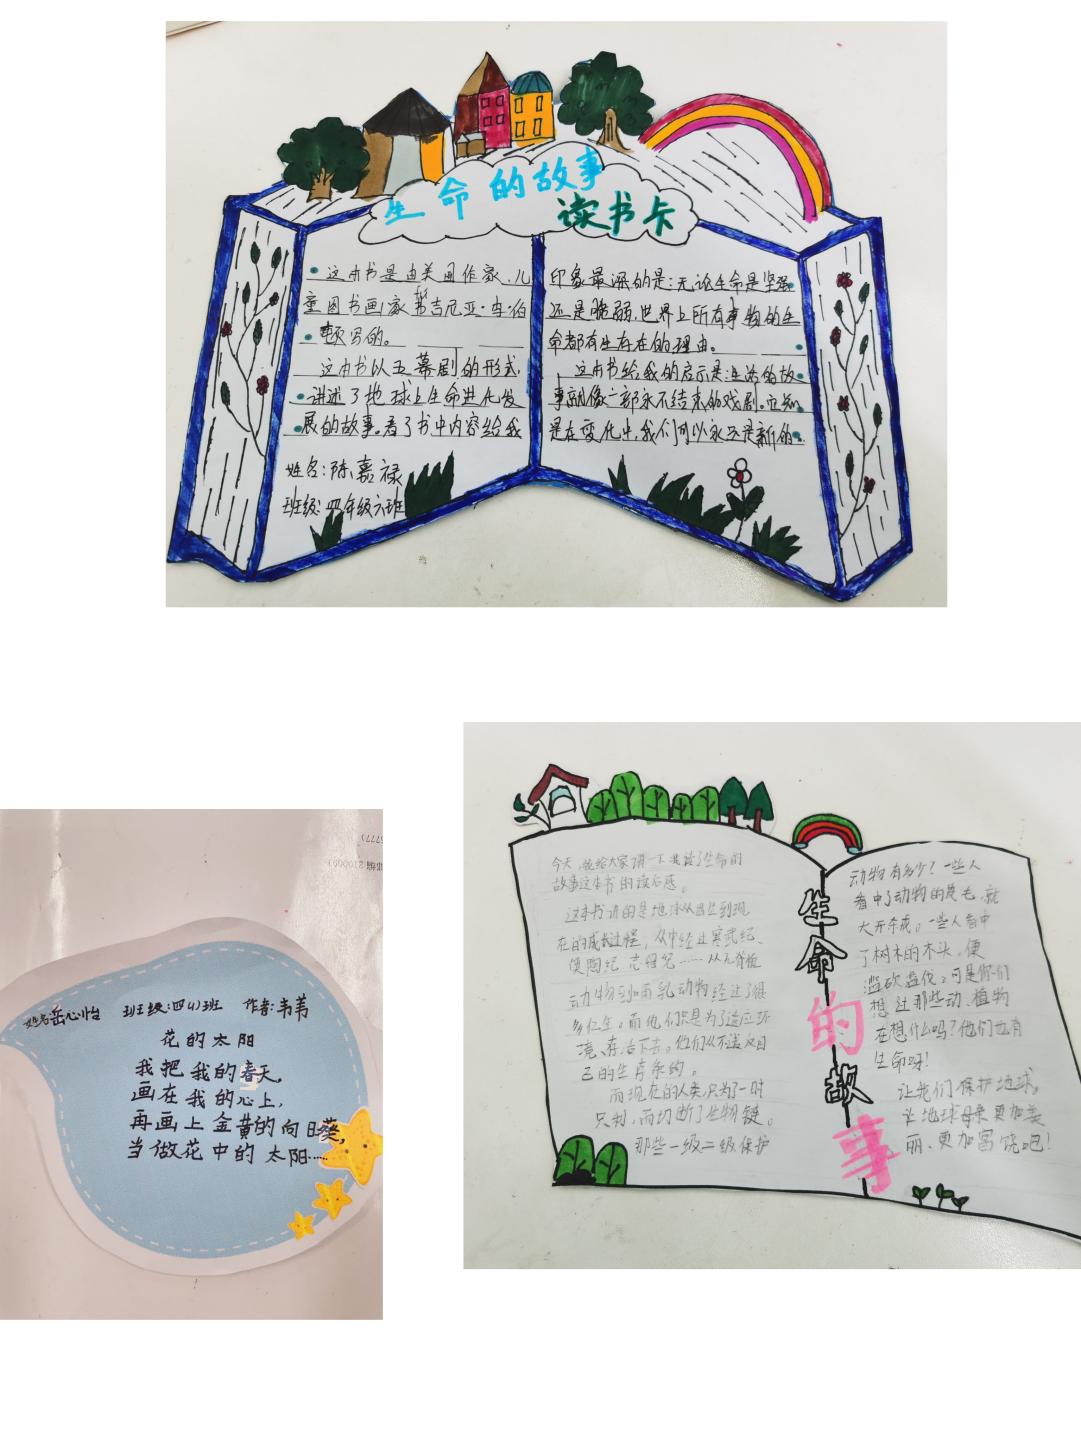 生命的故事
读书卡
这本书是由美国作家、儿
童图书画家弗吉尼亚·李·伯
顿写的。
这本书以五幕剧的形式,
讲述了地球上生命进化发
展的故事。看了书中内容给我
姓名:陈嘉禄
班级:四年级六班
印象最深的是:无论生命是坚强
还是脆弱,世界上所有事物的生
命都有生存在的理由。
这本书给我的启示是:生活的故
事就像一部永不结束的戏剧。
是在变化中,我们可以永远是新的。
姓名岳心怡 班级:四(4)班 作者:韦苇
花的太阳
我把我的春天,
画在我的心上,
再画上金黄的向日葵,
当做花中的太阳……
今天,我给大家讲一下我读了生命的
故事这本书的读后感。
这本书讲的是地球从诞生到现
在的成长过程,从中经过寒武纪、
奥陶纪 志留纪……从无脊椎
动物到哺乳动物经过了很
多仁生。而他们只是为了适应环
境、存活下去。他们从不滥义自
己的生育系的。
而现在的人类只为了一时
只利,而切断了生物链。
那些一级二级保护
生命的故事
动物有多少?一些人
看中了动物的皮毛,就
大开杀戒。一些人看中
了树木的木头,便
滥砍盗伐,可是你们
想过那些动、植物
在想什么吗?他们也有
生命呀!
让我们保护地球,
让地球母亲更加美
丽、更加富饶吧!